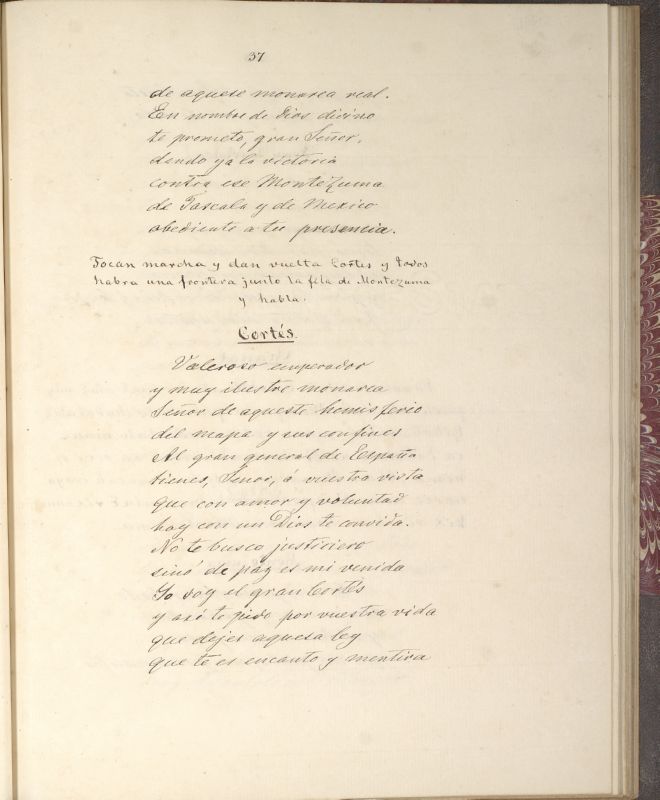 37
de aquese monarca real.
En nombre de Dios divino
te prometo, gran Señor,
dando ya la victoria
contra ese Montezuma
de Tascala y de Mexico
obediente a tu presencia.
Tocan marcha y dan vuelta Cortes y todos
habra una frontera junto la fila de Montezuma
y habla.
Cortés.
Valeroso emperador
y muy ilustre monarca
Señor de aqueste hemisferio
del mapa y sus confines
Al gran general de España
tienes, Senor, á vuestra vista
que con amor y voluntad
hoy con un Dios te convida.
No te busco justiciero
sinó de páz es mi venida
Yo soy el gran Cortés
y asó te pido por vuestra vida
que dejes aquesa ley
que te es encanto y mentira